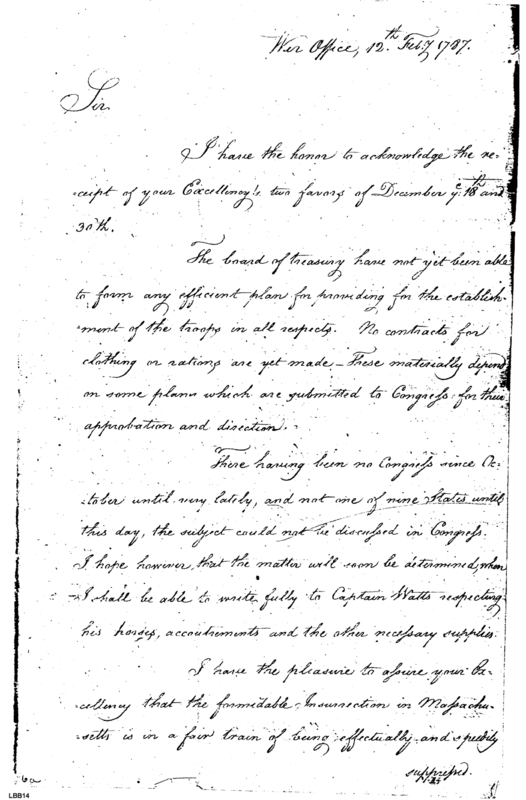 War Office, 12.th Feb.y 1787.
Sir.
I have the honor to acknowledge the re-
-ceipt of your Excellency's two favors of December ye. 18th and
30th.
The board of treasury have not yet been able
to form any efficient plan for providing for the establish-
-ment of the troops in all respects. No contracts for
clothing or rations are yet made — These materially depend
on some plans which are submitted to Congress for their
approbation and direction. -
There having been no Congress since Oc-
-tober until very lately, and not one of nine States until
this day, the subject could not be discussed in Congress.
I hope however, that the matter will soon be determined, when
I shall be able to write fully to Captain Watts respecting
his horses, accoutrements and the other necessary supplies
I have the pleasure to assure your Ex-
-cellency that the formidable Insurrection in Massachu-
-setts is in a fair train of being effectually and speedily
suppressed.
LBB14